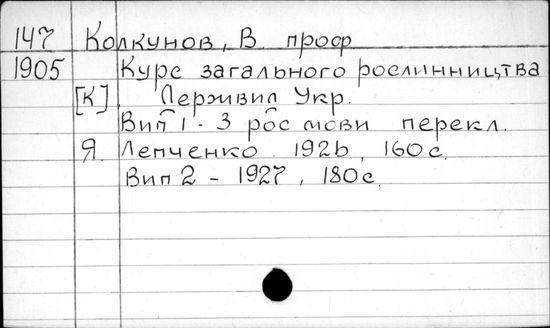 147 Колкунов, В. проф
1905 Курс загального рослинництва
[К] Держвид Укр.
Вип 1 - 3 рос мови перекл.
Я. Лепченко 1926, 160 с.
Вип 2 - 1927, 180 с.